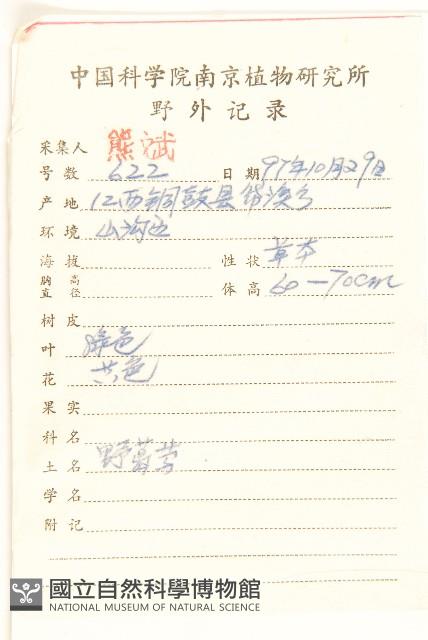 中国科学院南京植物研究所
野外记录
采集人 熊斌
号数 622 日期 97年10月29日
产地 江西铜鼓县
环境 山沟边
海拔 性状 草本
胸高直径 体高 60—70cm
树皮
叶 绿色
花 黄色
果实
科名
土名 野
学名
附记
國立自然科學博物館
NATIONAL MUSEUM OF NATURAL SCIENCE